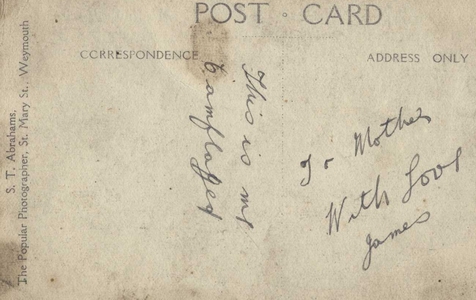 POST CARD
CORRESPONDENCE
ADDRESS ONLY
S. T. Abrahams,
The Popular Photographer, St. Mary St., Weymouth
This is me
Camflaged
To Mother
With Love
James